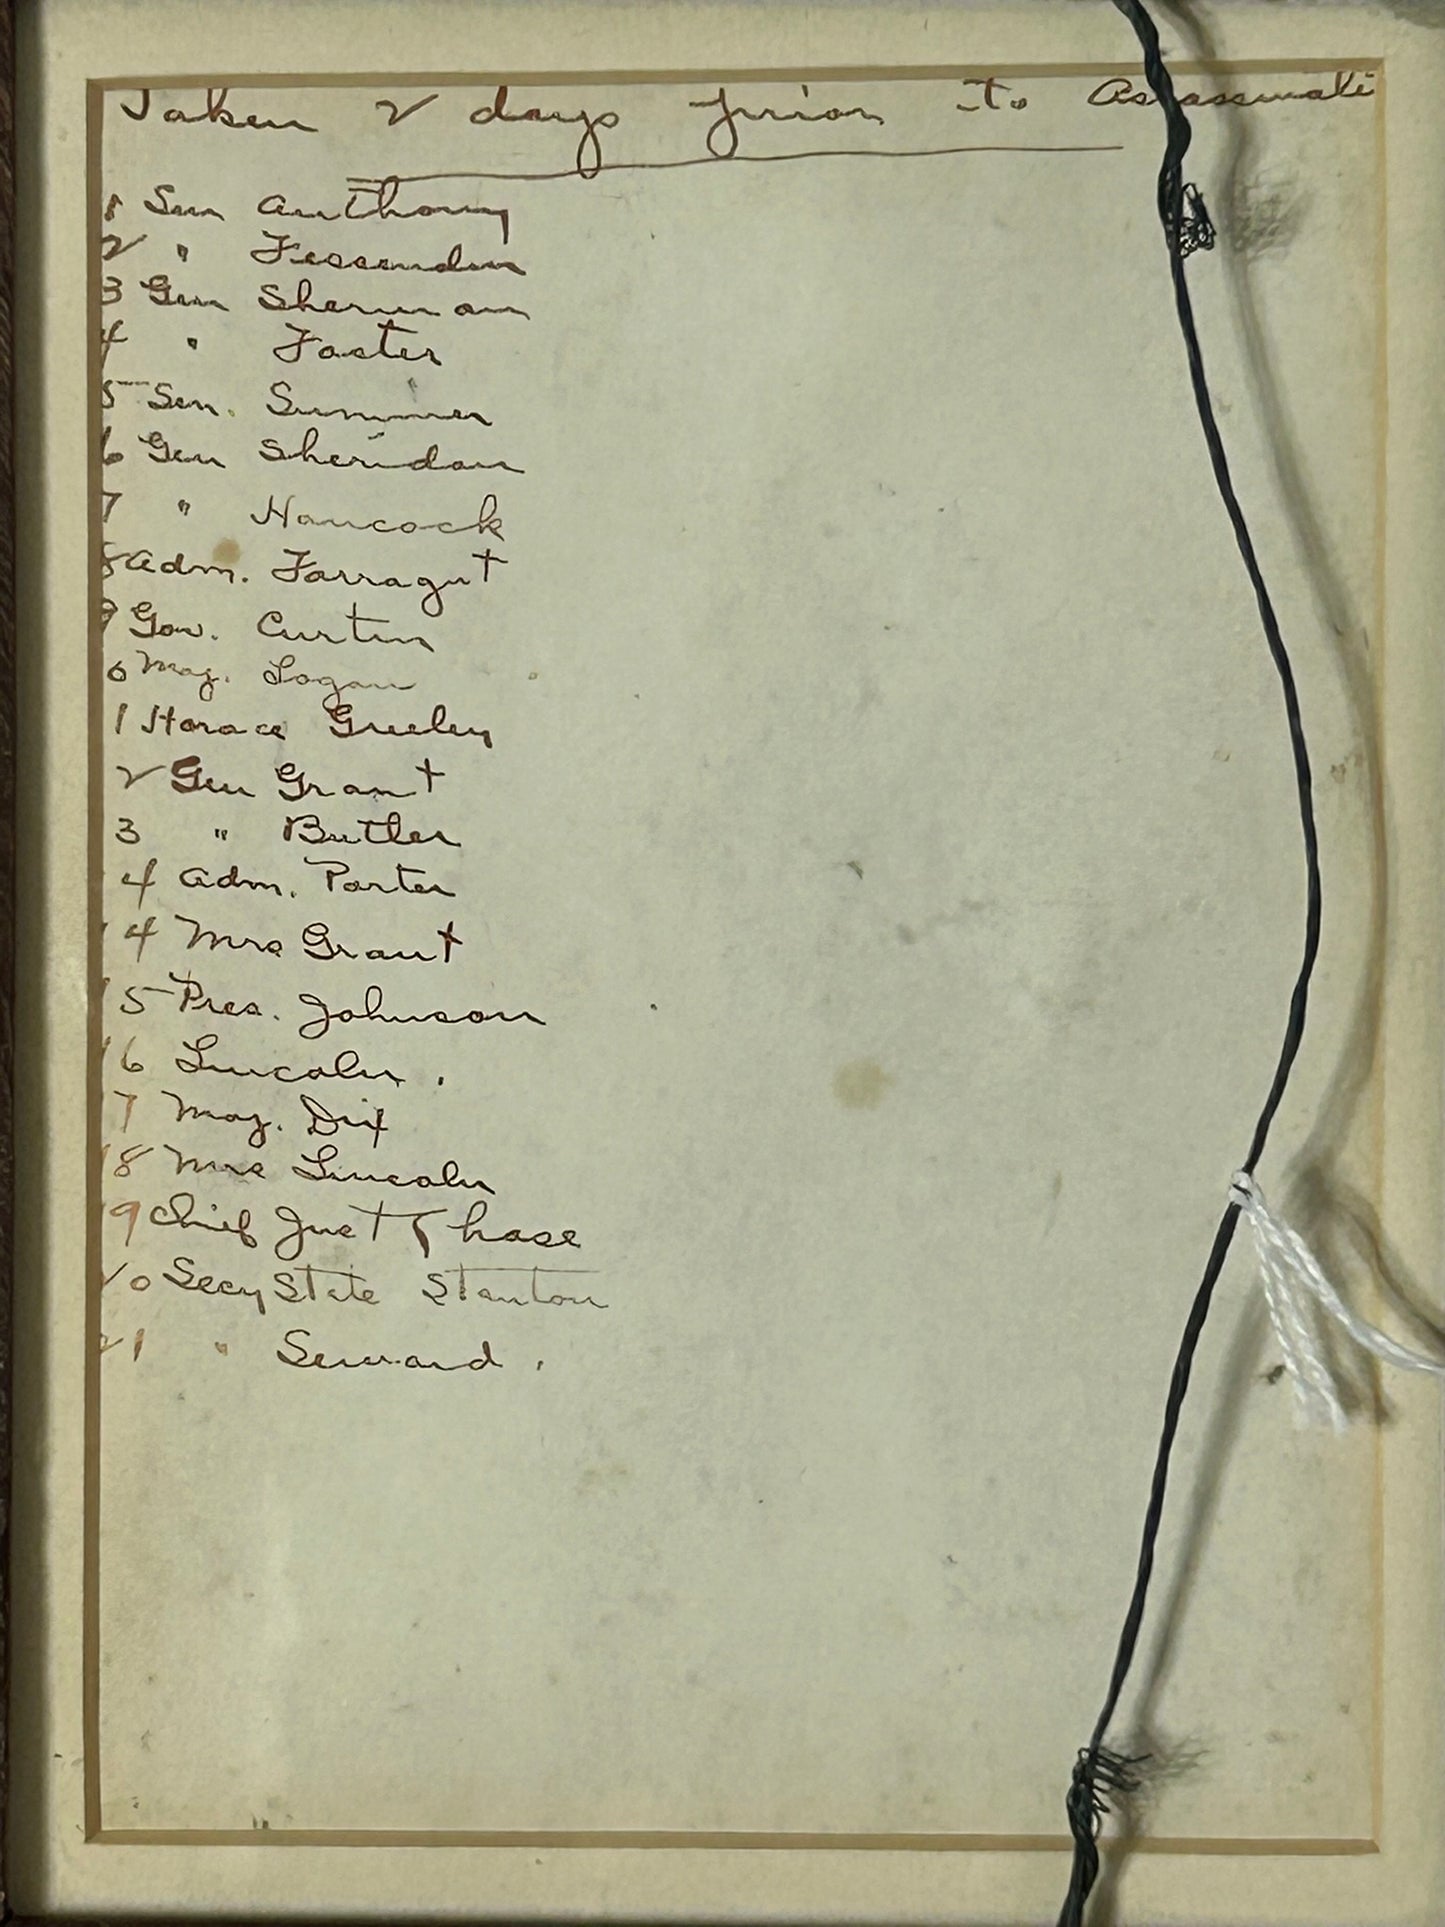 Taken 2 days prior to Assassinati
1 Sen Anthony
2 " Fessenden
3 Gen Sherman
4 " Foster
5 Sen. Sumner
6 Gen Sheridan
7 " Hancock
8 Adm. Farragut
9 Gov. Curtin
0 Maj. Logan
1 Horace Greeley
2 Gen Grant
3 " Butler
4 Adm. Porter
14 Mrs Grant
15 Pres. Johnson
16 Lincoln.
17 Maj. Dix
18 Mrs Lincoln
19 Chief Just Chase
20 Secy State Stanton
21 " Seward.